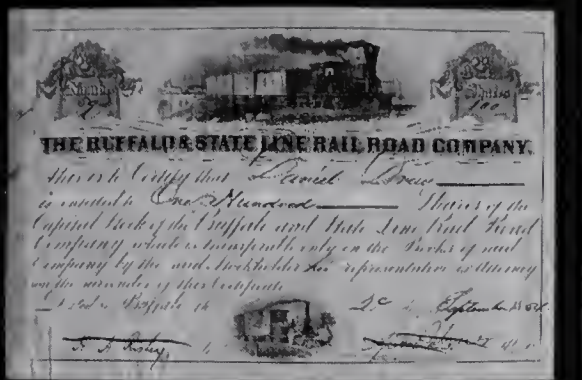 Shares
100
THE BUFFALO & STATE LINE RAIL ROAD COMPANY.
This is to Certify that Daniel Drew
is entitled to One Hundred Shares of the
Capital Stock of the Buffalo and State Line Rail Road
Company which is transferable only on the Books of said
Company by the said Stockholder his representative or Attorney
on the surrender of this Certificate
Buffalo September